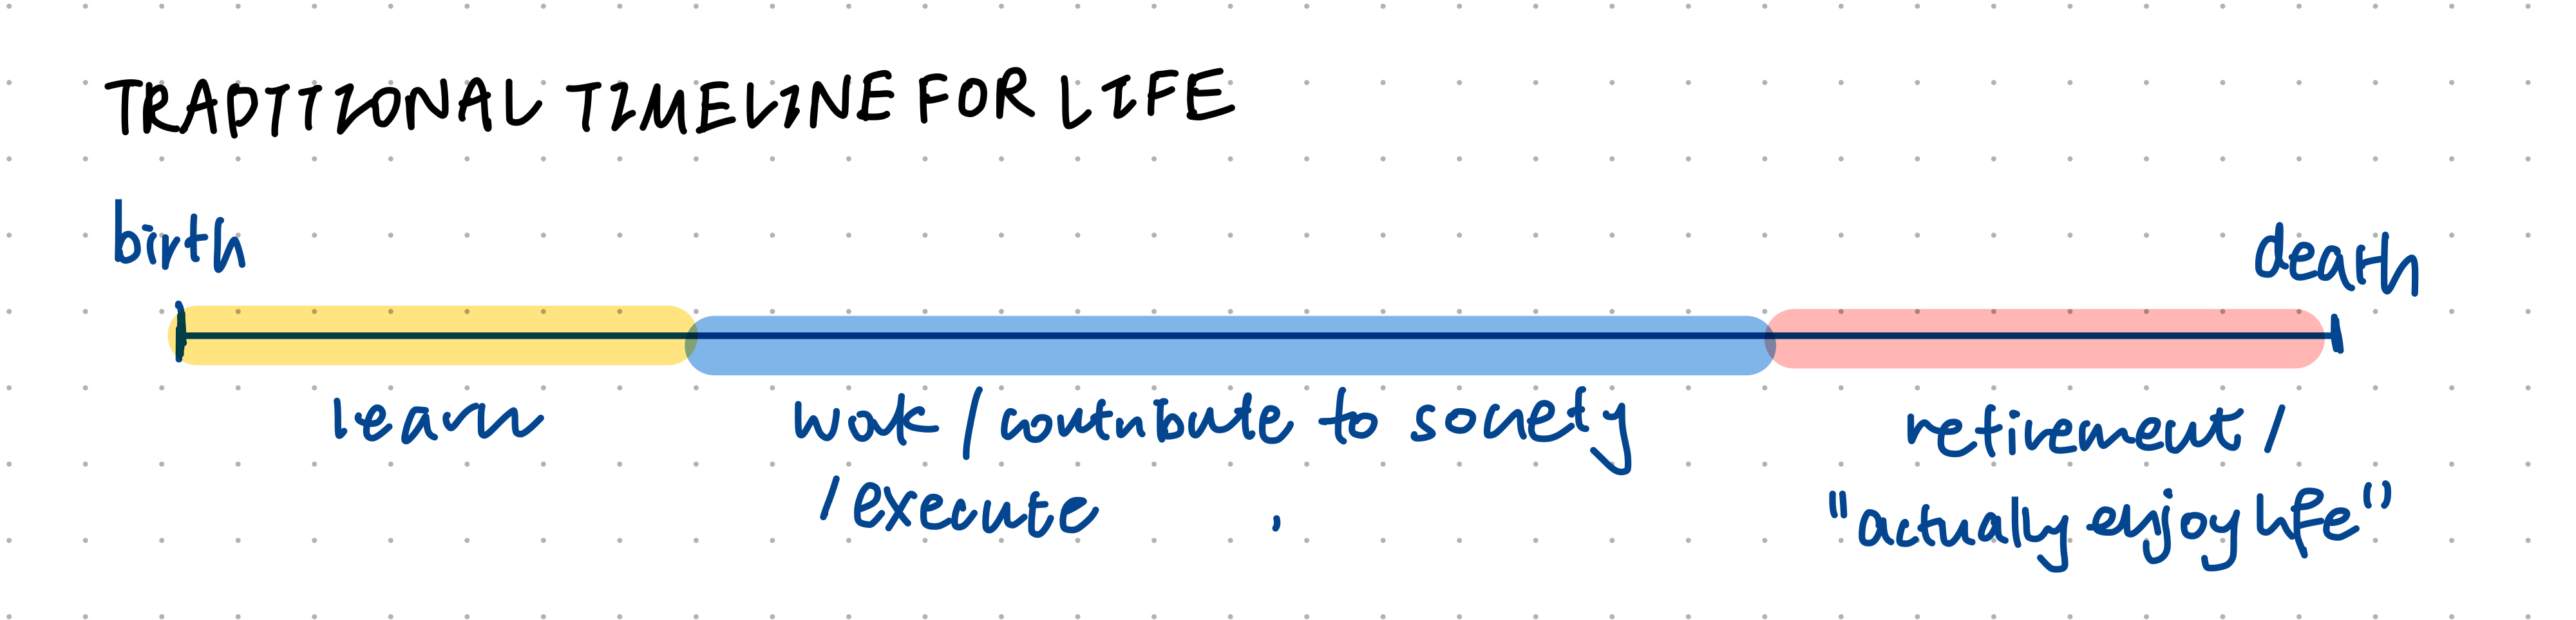 TRADITIONAL TIMELINE FOR LIFE
birth
death
learn
work / contribute to society
/ execute
retirement /
"actually enjoy life"